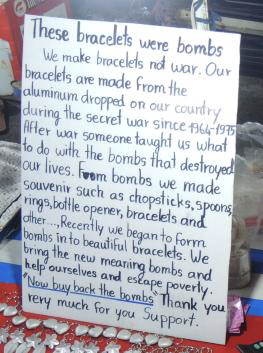 These bracelets were bombs
We make bracelets not war. Our
bracelets are made from the
aluminum dropped on our country
during the secret war since 1964-1975
After war someone taught us what
to do with the bombs that destroyed
our lives. From bombs we made
souvenir such as chopsticks, spoons,
rings, bottle opener, bracelets and
other..., Recently we began to form
bombs in to beautiful bracelets. We
bring the new meaning bombs and
help ourselves and escape poverty.
"Now buy back the bombs" Thank you
very much for you Support.